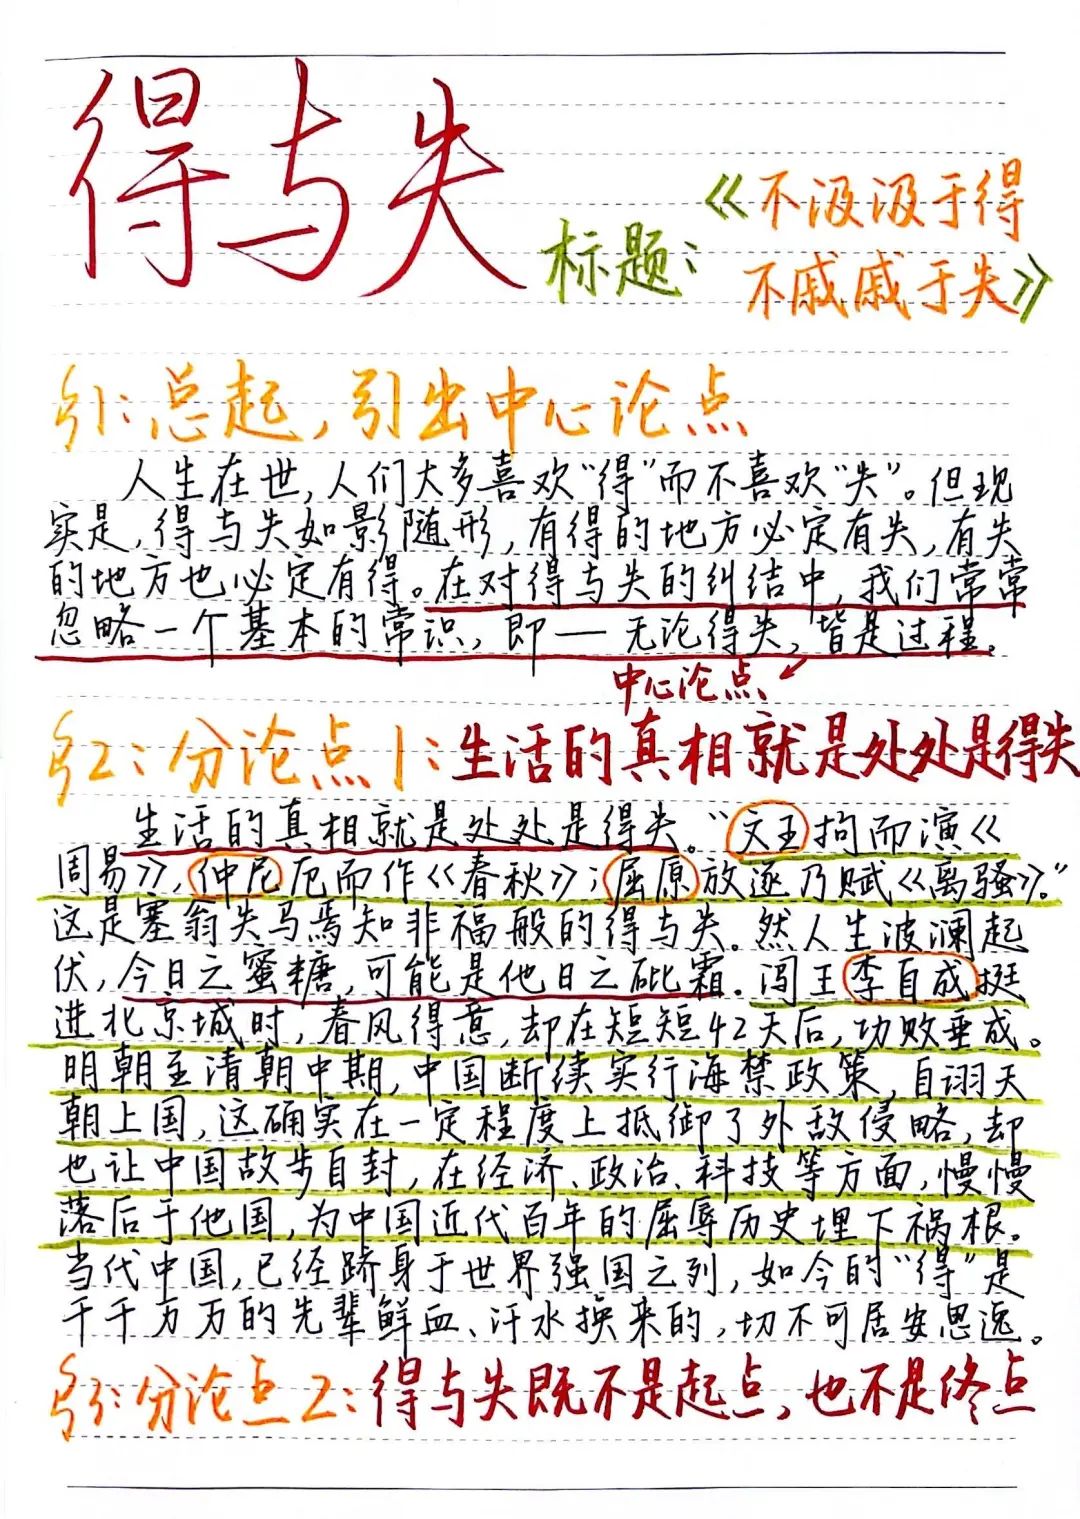 得与失
标题：《不汲汲于得
不戚戚于失》
§1：总起，引出中心论点
人生在世，人们大多喜欢“得”而不喜欢“失”。但现
实是，得与失如影随形，有得的地方必定有失，有失
的地方也必定有得。在对得与失的纠结中，我们常常
忽略一个基本的常识，即——无论得失，皆是过程。
中心论点
§2：分论点1：生活的真相就是处处是得失
生活的真相就是处处是得失。“文王拘而演《
周易》，仲尼厄而作《春秋》；屈原放逐乃赋《离骚》。”
这是塞翁失马焉知非福般的得与失。然人生波澜起
伏，今日之蜜糖，可能是他日之砒霜。闯王李自成挺
进北京城时，春风得意，却在短短42天后，功败垂成。
明朝至清朝中期，中国断续实行海禁政策，自诩天
朝上国，这确实在一定程度上抵御了外敌侵略，却
也让中国故步自封，在经济、政治、科技等方面，慢慢
落后于他国，为中国近代百年的屈辱历史埋下祸根。
当代中国，已经跻身于世界强国之列，如今的“得”是
千千万万的先辈鲜血、汗水换来的，切不可居安思逸。
§3：分论点2：得与失既不是起点，也不是终点